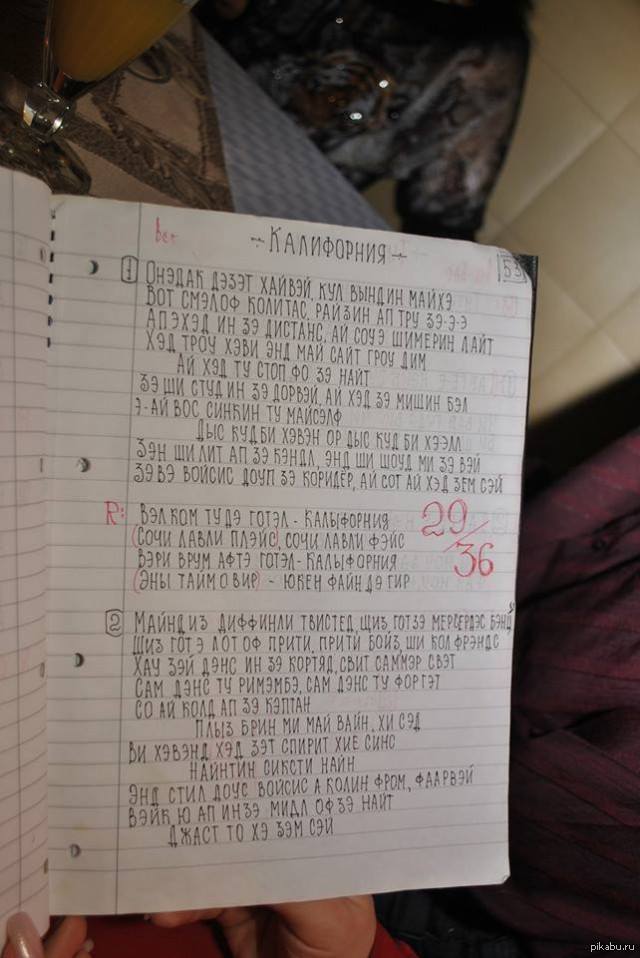 Вет
÷ КАЛИФОРНИЯ ÷
53
1 ОНЭДАК ДЭЗЭТ ХАЙВЭЙ, КУЛ ВЫНДИН МАЙХЭ
ВОТ СМЭЛОФ КОЛИТАС, РАЙЗИН АП ТРУ ЗЭ-Э-Э
АПЭХЭД ИН ЗЭ ДИСТАНС, АЙ СОУЭ ШИМЕРИН ЛАЙТ
ХЭД ТРОУ ХЭВИ ЭНД МАЙ САЙТ ГРОУ ДИМ
АЙ ХЭД ТУ СТОП ФО ЗЭ НАЙТ
ЗЭ ШИ СТУД ИН ЗЭ ДОРВЭЙ, АЙ ХЭД ЗЭ МИШИН БЭЛ
Э-АЙ ВОС СИНКИН ТУ МАЙСЭЛФ
ДЫС КУД БИ ХЭВЭН ОР ДЫС КУД БИ ХЭЭЛЛ
ЗЭН ШИ ЛИТ АП ЗЭ КЭНДЛ, ЭНД ШИ ШОУД МИ ЗЭ ВЭЙ
ЗЭ ВЭ ВОЙСИС ДОУП ЗЭ КОРИДЁР, АЙ СОТ АЙ ХЭД ЗЕМ СЭЙ
R: ВЭЛКОМ ТУ ДЭ ГОТЭЛ - КАЛЫФОРНИЯ
(СОЧИ ЛАВЛИ ПЛЭЙС), СОЧИ ЛАВЛИ ФЭЙС
ВЭРИ ВРУМ АФТЭ ГОТЕЛ - КАЛЫФОРНИЯ
(ЭНЫ ТАЙМ О ВИР) - ЮКЕН ФАЙН ДЭ ГИР
29/36
2 МАЙНД ИЗ ДИФФИНЛИ ТВИСТЕД, ЩИЗ ГОТ ЗЭ МЕРСЕРДЭС БЭНДЗ
ШИЗ ГОТ Э ЛОТ ОФ ПРИТИ, ПРИТИ БОЙЗ, ШИ КОЛ ФРЭНДС
ХАУ ЗЭЙ ДЭНС ИН ЗЭ КОРТЯД, СВИТ САММЭР СВЭТ
САМ ДЭНС ТУ РИМЭМБЭ, САМ ДЭНС ТУ ФОРГЭТ
СО АЙ КОЛД АП ЗЭ КЭПТАН
ПЛЫЗ БРИН МИ МАЙ ВАЙН, ХИ СЭД
ВИ ХЭВЭНД ХЭД ЗЭТ СПИРИТ ХИЕ СИНС
НАЙНТИН СИКСТИ НАЙН
ЭНД СТИЛ ДОУС ВОЙСИС А КОЛИН ФРОМ, ФААРВЭЙ
ВЭЙК Ю АП ИН ЗЭ МИДЛ ОФ ЗЭ НАЙТ
ДЖАСТ ТО ХЭ ЗЭМ СЭЙ
pikabu.ru